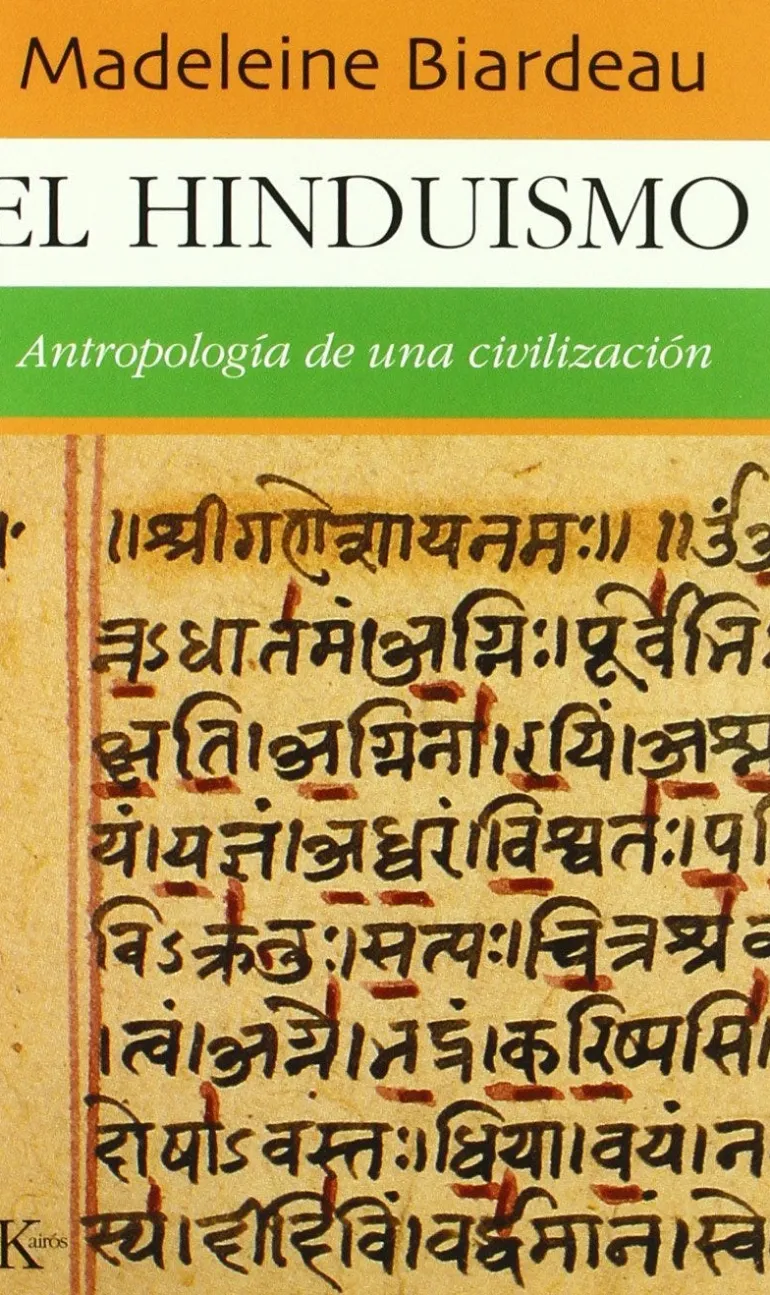 Madeleine Biardeau
EL HINDUISMO
Antropología de una civilización
॥श्रीगणेशायनमः॥ ॥
त्नऽधातमं।अग्निः।पूर्वेभि
अग्निना।रयिं।अश्न
यं।यज्ञं।अध्वरं।विश्वतः।प
विऽक्रतुः।सत्यः।चित्रश्रव
।त्वं।अग्ने।भद्रं।करिष्यसि।
दोषाऽवस्तः।धिया।वयं।न
स्य।दीदिविं।वर्द्धमानं।स्वे
Kairós